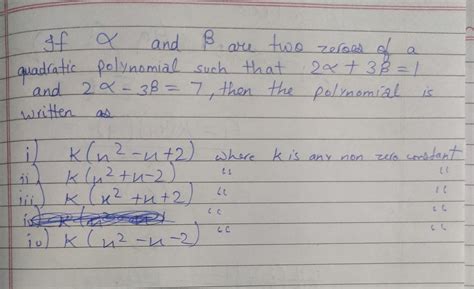 If α and β are two zeroes of a
quadratic polynomial such that 2α + 3β = 1
and 2α - 3β = 7, then the polynomial is
written as
i) K(x² - x + 2) where k is any non zero constant
ii) K(x² + x - 2) " "
iii) K(x² + x + 2) " "
" "
iv) K(x² - x - 2) " "